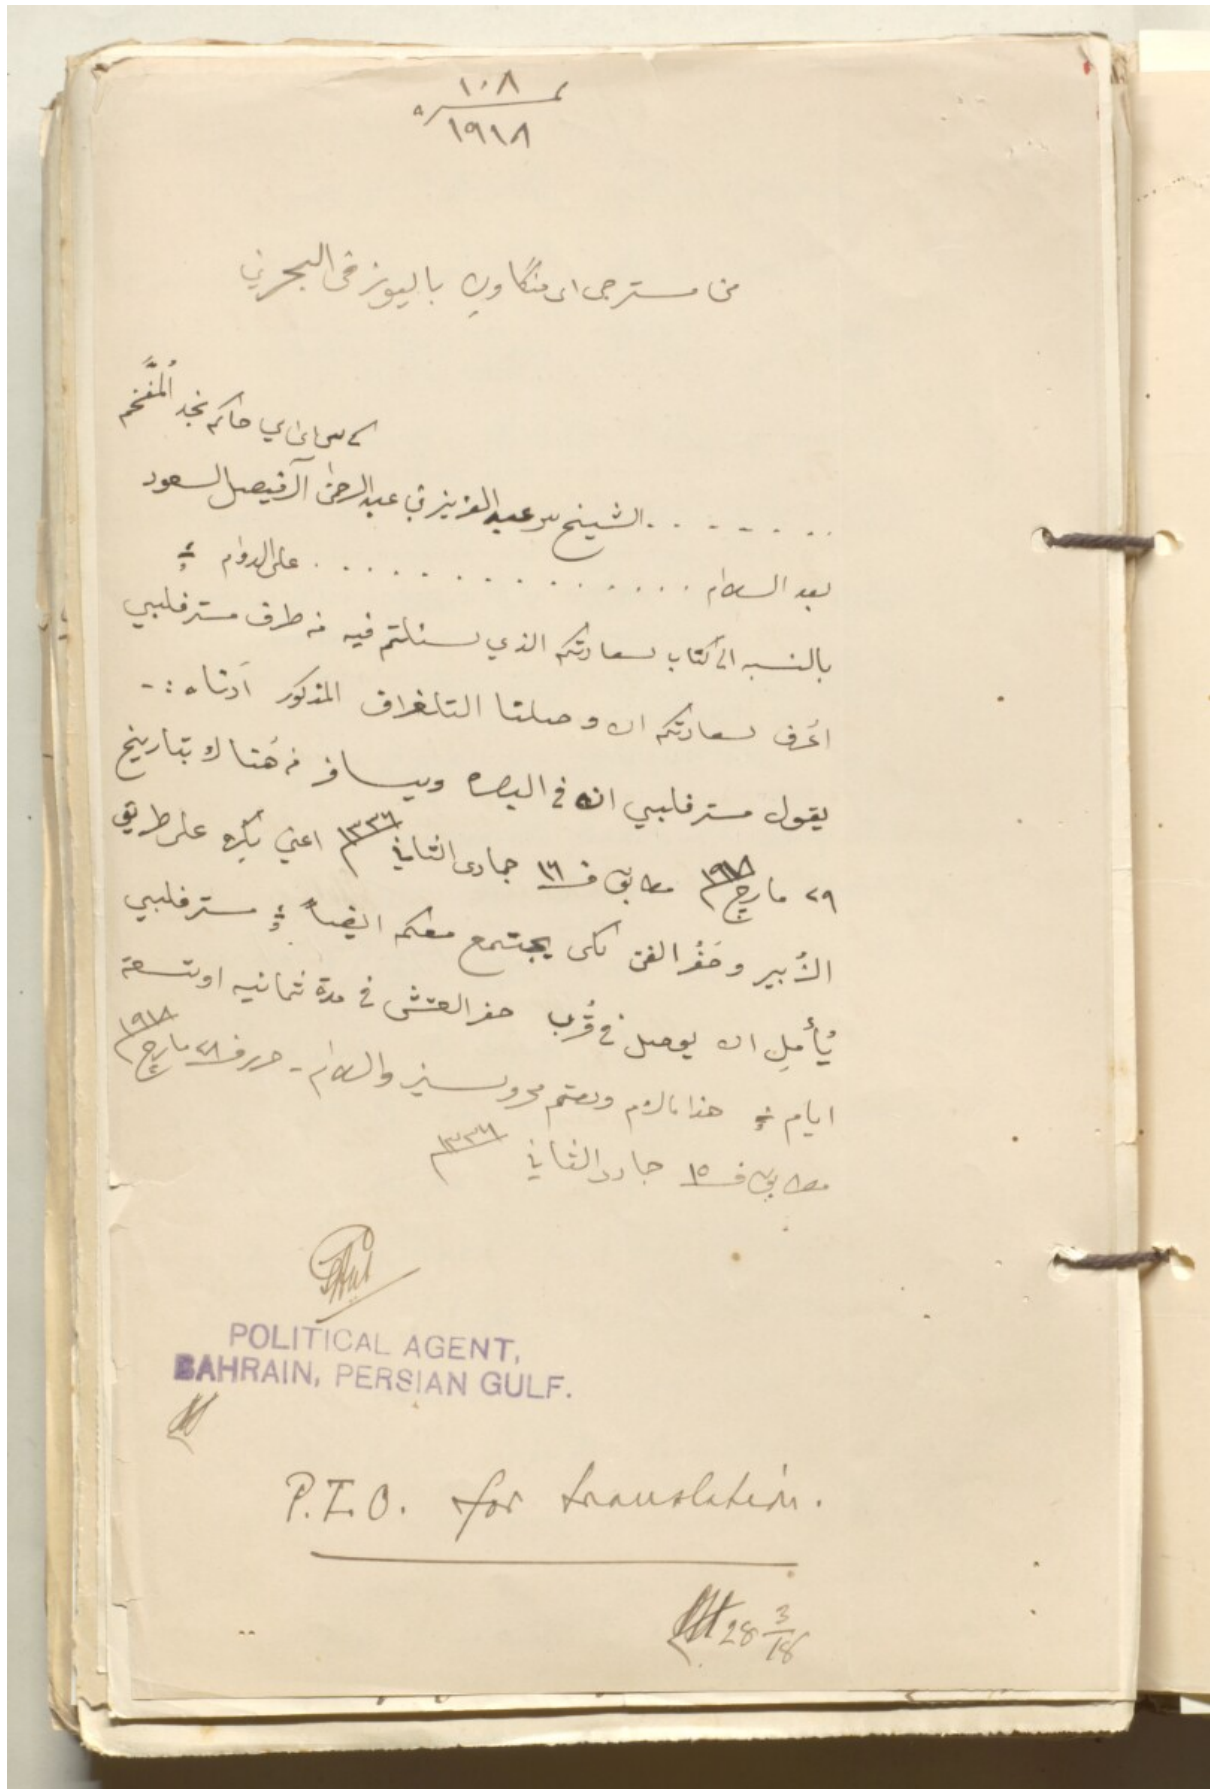 ١٠٨
١٩١٨
من مستر جى اى منگاوين باليوز فى البحرين
كى سى اى اي حاكم نجد المُفَّخم
. . . . . . . الشيخ سر عبد العزيز بن عبد الرحمن آل فيصل السعود
بعد السلام . . . . . . . . . . . . . . . على الدوام
بالنسبه الى كتاب سعادتكم الذي سئلتم فيه من طرف مستر فلبي
اعُرف سعادتكم ان وصلنا التلغراف المذكور أدناه :-
يقول مستر فلبي انه في البصره ويسافر من هُناك بتاريخ
٢٩ مارچ ١٩١٨ مطابق ف ١٦ جمادى الثاني ١٣٣٦ اعني بكره على طريق
الزُبير وحَفُر لكى يجتمع معكم ايضاً مستر فلبي
يُأمِل ان يوصل في قُرب حفر العتش في مدة ثمانيه او تسعة
ايام هذا مالزم ودمتم محروسين والسلام - حرر ف ٢٨ مارچ ١٩١٨
مطابق ف ١٥ جمادى الثاني ١٣٣٦
POLITICAL AGENT,
BAHRAIN, PERSIAN GULF.
P.T.O. for translation.
28 3/18